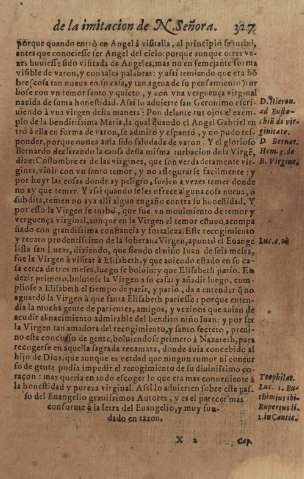 de la imitacion de N. Señora. 327
porque quando entrò en Angel à visitalla, al principio se turbò,
antes que conociesse ser Angel del cielo: porque aunque otras ve-
zes huuiesse sido visitada de Angeles, mas no en semejante forma
visible de varon, y con tales palabras: y assi temiendo que era hō
bre, cosa tan nueua en su casa, y tan agena de su pensamiento;
bose con vn temor santo y quieto, y con vna verguença virginal
nacida de suma honestidad. Assi lo aduierte san Geronimo escri-
uiendo à vna virgen desta manera: Pon delante tus ojos el exem-
plo de la bienditissima Maria, la qual quando el Angel Gabriel en
trò à ella en forma de varon, se admirò y espantò, y no pudo res-
ponder, porque nunca auia sido saludada de varon. Y el glorioso
Bernardo declarando la causa desta misma turbacion de la Virgē,
dize: Costumbre es de las virgines, que son verdaderamente vir-
gines, viuir con vn santo temor, y no assegurarse facilmente: y
por huyr las cosas donde ay peligro, suelen a vezes temer donde
no ay que temer. Y assi quando se les ofrece alguna cosa nueua, ò
subdita, temen no aya alli algun engaño contra su honestidad. Y
por esto la Virgen se turbò, que fue vn mouimiento de temor y
verguença virginal, aunque en la Virgen el temor estuuo acompa
ñado con grandissima confiança y fortaleza. Este recogimiento
y recato prudentissimo de la soberana Virgen, apuntò el Euange
lista san Lucas, diziendo, que siendo el niño Iuan de seis meses,
fue la Virgen à visitar à Elisabeth, y que auiendo estado en su ca-
sa cerca de tres meses, luego se boluio: y que Elisabeth pario. En
dezir primero, boluiose la Virgen a su casa: y añadir luego, cum-
pliose a Elisabeth el tiempo de parir, y pario, da a entender q̄ no
aguardò la Virgen à que santa Elisabeth pariesse: porque enten-
dia la mucha gente de parientes, amigos, y vezinos que auian de
acudir al nacimiento admirable del bendito niño Iuan; y por ser
la Virgen tan amadora del recogimiento, y santo secreto, preui-
no este concurso de gente, boluiendose primero à Nazareth, para
recogerse en aquella sagrada recamara, donde auia concebido al
hijo de Dios: que aunque es verdad que ningun rumor ni concur
so de gente podia impedir el recogimiento de su diuinissimo co-
raçon: mas queria en todo escoger lo que era mas conueniente à
la honestidad y pureza virginal. Assi lo aduierten sobre este pas-
so del Euangelio grauissimos Autores, y es el parecer mas
conforme à la letra del Euangelio, y muy fun-
dado en razon.
X 2 Cap.
D. Hieron.
ad Eusto-
chiū de vir-
ginitate.
D. Bernat.
Hom. 3. de
B. Virgine,
Luc. 1.
Teophilat.
Luc. 1. Eu-
thimius ibi
Rupertus li.
1. in Cant.